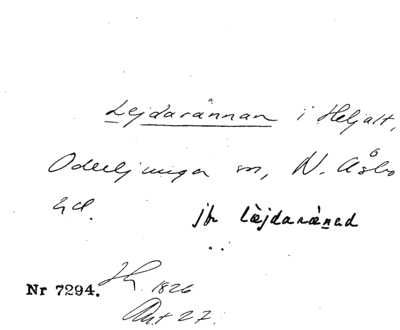 Lejdarännan i Heljalt,
Oderljunga sn, N. Åsbo
hd.
jfr lèjdaræ̀nad
Nr 7294. 1826
Akt 27.